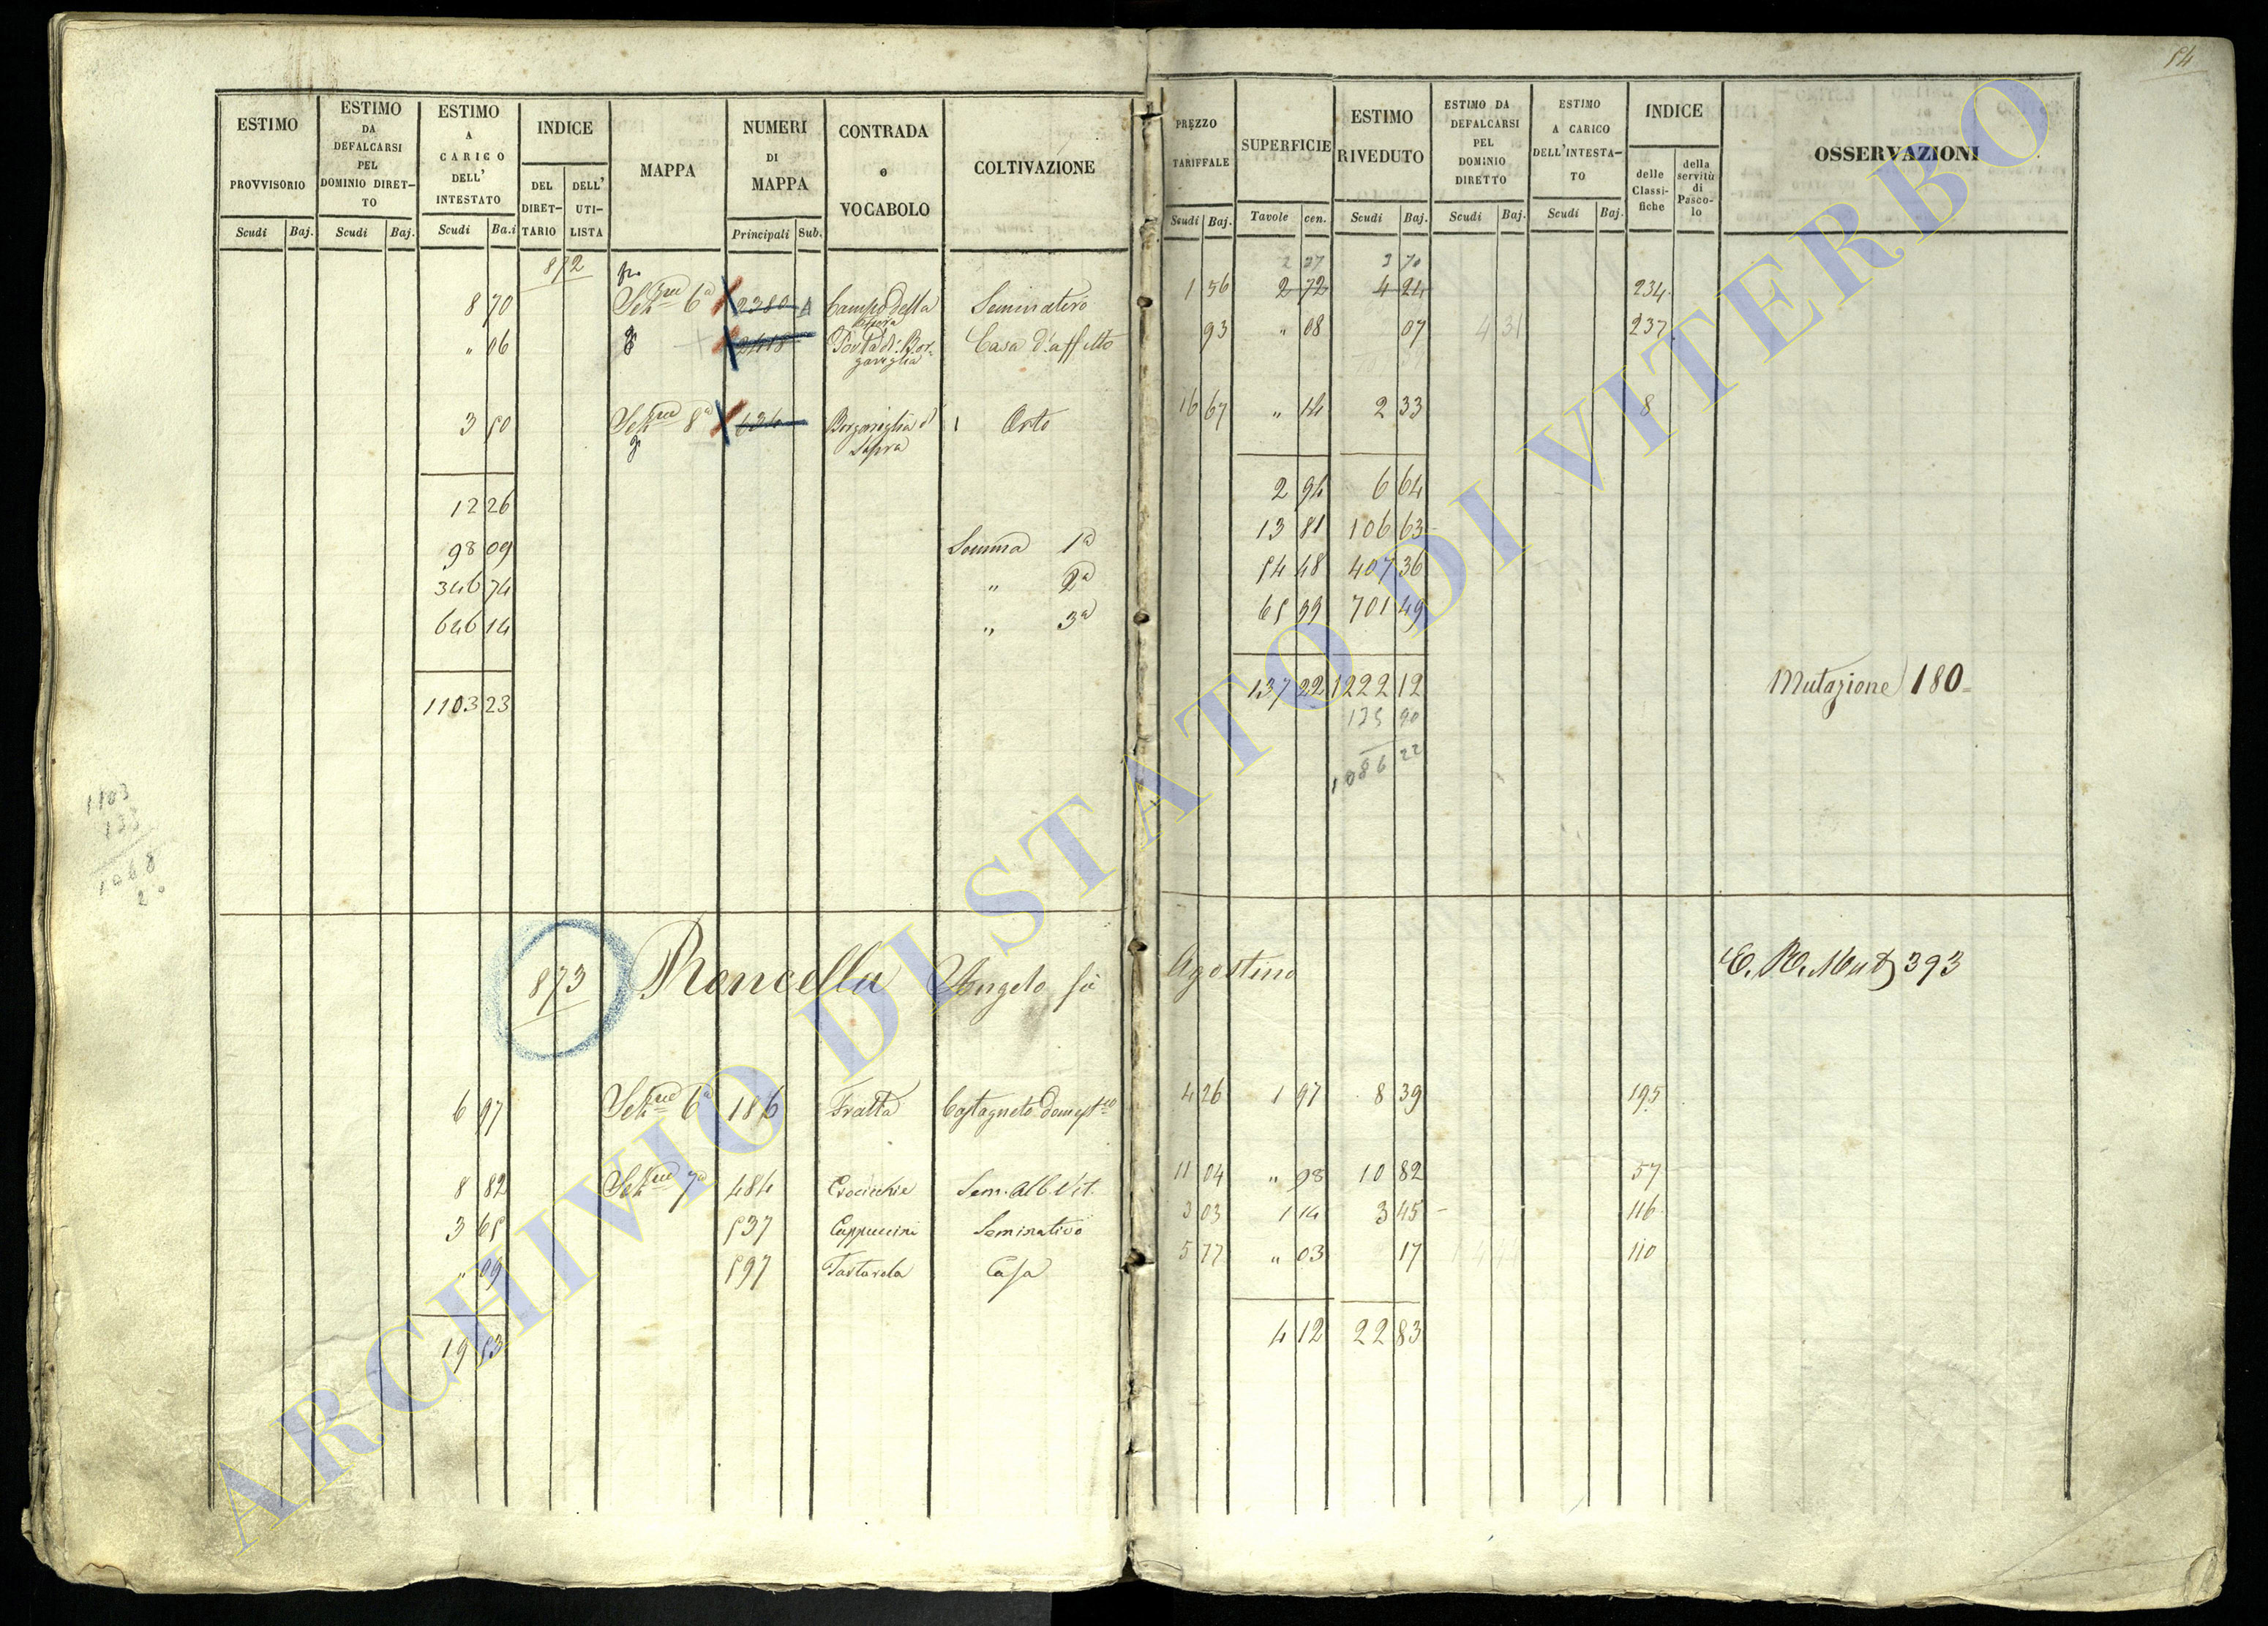 54
ESTIMO PROVVISORIO Scudi Baj.
ESTIMO DA DEFALCARSI PEL DOMINIO DIRET-TO Scudi Baj.
ESTIMO A CARICO DELL' INTESTATO Scudi Ba.i
INDICE DEL DIRET-TARIO DELL' UTI-LISTA
MAPPA
NUMERI DI MAPPA Principali Sub.
CONTRADA o VOCABOLO
COLTIVAZIONE
PREZZO TARIFFALE Scudi Baj.
SUPERFICIE Tavole cen.
ESTIMO RIVEDUTO Scudi Baj.
ESTIMO DA DEFALCARSI PEL DOMINIO DIRETTO Scudi Baj.
ESTIMO A CARICO DELL'INTESTA-TO Scudi Baj.
INDICE delle Classi-fiche della servitù di Pasco-lo
OSSERVAZIONI
872
2 37 3 70
8 70 Sezne 6a 2380 Campo della Seminativo 1 56 2 72 4 24 234
" 06 2418 Porta di Bor-gariglia Casa d'affitto 93 " 08 07 4 31 237
3 50 Sezne 8a 634 Borgariglia di Sopra Orto 16 67 " 14 2 33 8
12 26 2 94 6 64
98 09 Somma 1a 13 81 106 63
346 74 " 2a 54 48 407 36
646 14 " 3a 65 99 701 49
1103 23 137 22 1222 12 Mutazione 180
135 90
1086 22
1103
873 Roncella Angelo fù Agostino C. R. Mut 393
6 97 Sezne 6a 186 Fratta Castagneto domestco 4 26 1 97 8 39 195
8 82 Sezne 7a 484 Crocicchie Sem. Alb. Vit. 11 04 " 98 10 82 57
3 65 537 Cappuccini Seminativo 3 03 1 14 3 45 116
" 09 597 Tartarola Casa 5 77 " 03 17 110
19 53 4 12 22 83
ARCHIVIO DI STATO DI VITERBO